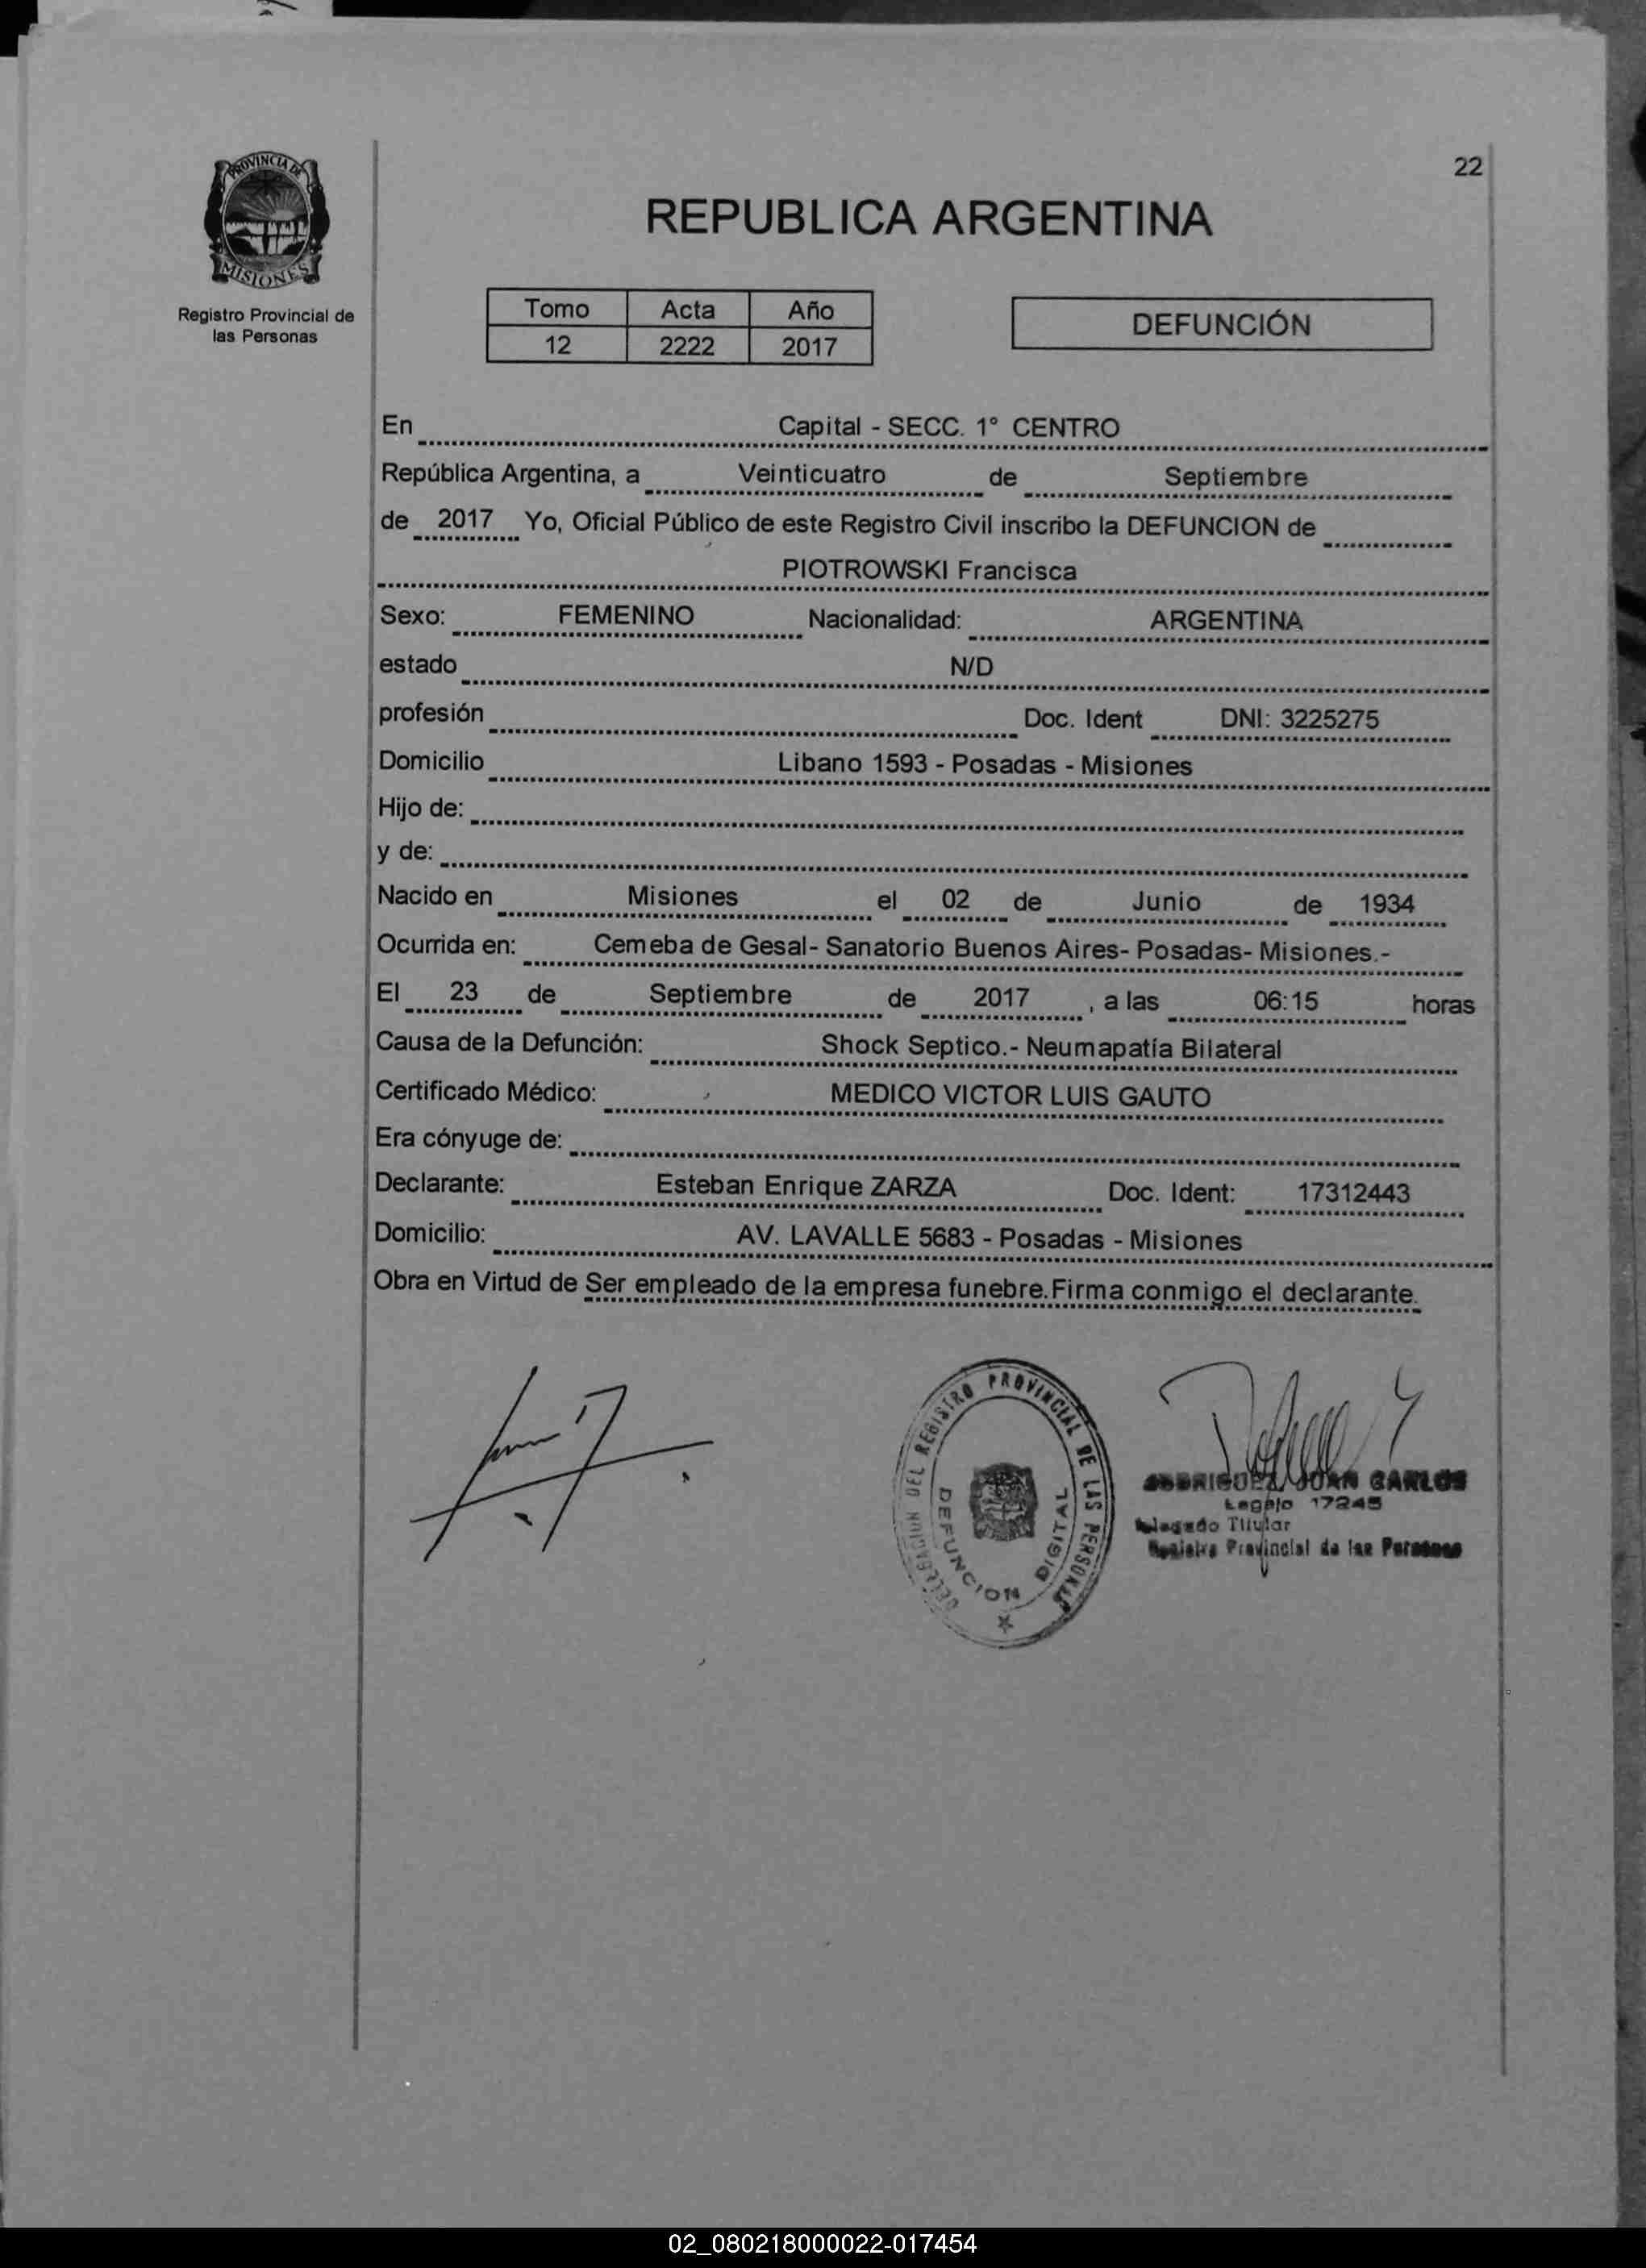 22
PROVINCIA DE
MISIONES
Registro Provincial de
las Personas
REPUBLICA ARGENTINA
Tomo Acta Año
12 2222 2017
DEFUNCIÓN
En Capital - SECC. 1° CENTRO
República Argentina, a Veinticuatro de Septiembre
de 2017 Yo, Oficial Público de este Registro Civil inscribo la DEFUNCION de
PIOTROWSKI Francisca
Sexo: FEMENINO Nacionalidad: ARGENTINA
estado N/D
profesión Doc. Ident DNI: 3225275
Domicilio Libano 1593 - Posadas - Misiones
Hijo de:
y de:
Nacido en Misiones el 02 de Junio de 1934
Ocurrida en: Cemeba de Gesal- Sanatorio Buenos Aires- Posadas- Misiones.-
El 23 de Septiembre de 2017 , a las 06:15 horas
Causa de la Defunción: Shock Septico.- Neumapatía Bilateral
Certificado Médico: MEDICO VICTOR LUIS GAUTO
Era cónyuge de:
Declarante: Esteban Enrique ZARZA Doc. Ident: 17312443
Domicilio: AV. LAVALLE 5683 - Posadas - Misiones
Obra en Virtud de Ser empleado de la empresa funebre.Firma conmigo el declarante.
DELEGACION DEL REGISTRO PROVINCIAL DE LAS PERSONAS
DEFUNCION DIGITAL
JUAN CARLOS
Legajo 17245
Titular
Provincial de las Personas
02_080218000022-017454